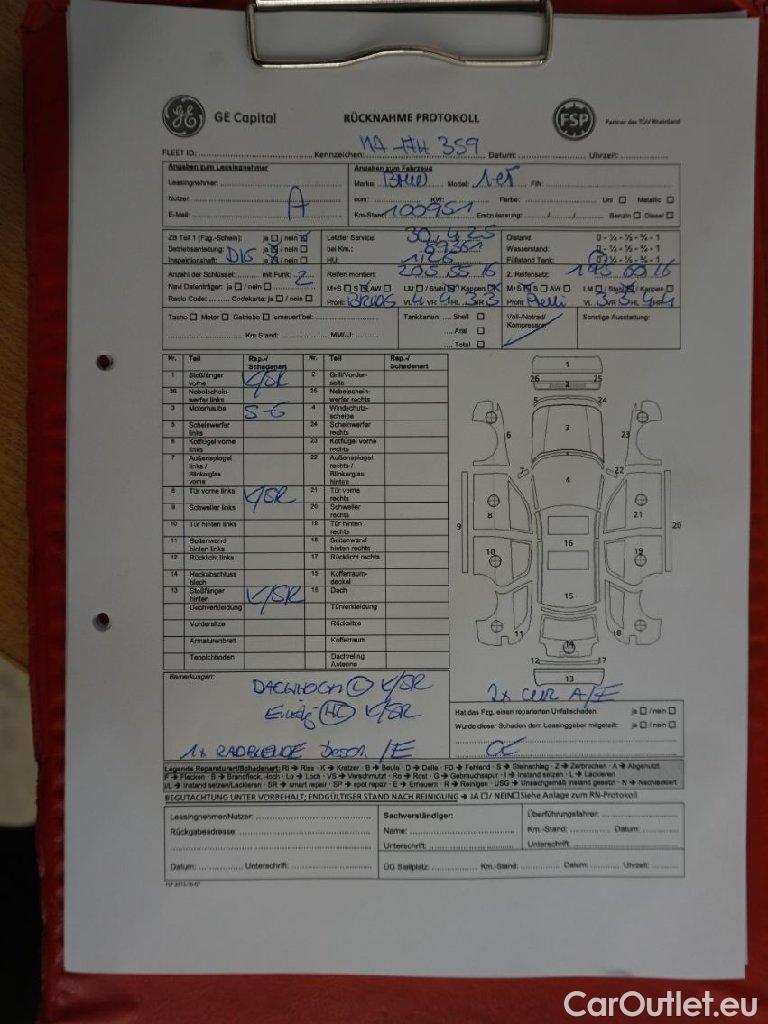 GE Capital RÜCKNAHME PROTOKOLL FSP Partner des TÜV Rheinland
FLEET ID: Kennzeichen: MA-HH 359 Datum: Uhrzeit:
Angaben zum Leasingnehmer Angaben zum Fahrzeug
Leasingnehmer: Marke: BMW Model: FIN:
Nutzer: A ccm: KW: Farbe: Uni Metallic
E-Mail: Km-Stand: 100951 Erstzulassung: Benzin Diesel
ZB Teil 1 (Fzg.-Schein): ja / nein Letzter Service: 30.4.25 Ölstand: 0 - ¼ - ½ - ¾ - 1
Betriebsanleitung: ja / nein bei Km.: Wasserstand: 0 - ¼ - ½ - ¾ - 1
Inspektionsheft: DIG ja / nein HU: 1/26 Füllstand Tank: 0 - ¼ - ½ - ¾ - 1
Anzahl der Schlüssel: mit Funk: 2 Reifen montiert: 205 55 16 2. Reifensatz: 195 60 16
Navi Datenträger: ja / nein M+S S AW LM / Stahl / Kappen M+S S AW LM / Stahl / Kappen
Radio Code: Codekarte: ja / nein Profil: VL 4 VR 4 HL 3 HR 3 Profil: VL 3 VR 3 HL 4 HR 4
Tacho Motor Getriebe erneuert bei: Tankkarten: Shell Voll-Notrad/ Sonstige Ausstattung:
Aral Kompressor
Km Stand: MW/J: Total
Nr. Teil Rep.-/ Schadenart Nr. Teil Rep.-/ Schadenart
1 Stoßfänger vorne K/SR 2 Grill/Vorderseite
26 Nebelscheinwerfer links 25 Nebelscheinwerfer rechts
3 Motorhaube S-G 4 Windschutzscheibe
5 Scheinwerfer links 24 Scheinwerfer rechts
6 Kotflügel vorne links 23 Kotflügel vorne rechts
7 Außenspiegel links / Blinkerglas vorne 22 Außenspiegel rechts / Blinkerglas hinten
8 Tür vorne links K/SR 21 Tür vorne rechts
9 Schweller links 20 Schweller rechts
10 Tür hinten links 19 Tür hinten rechts
11 Seitenwand hinten links 18 Seitenwand hinten rechts
12 Rücklicht links 17 Rücklicht rechts
14 Heckabschlussblech 15 Kofferraumdeckel
13 Stoßfänger hinten K/SR 16 Dach
Dachverkleidung Türverkleidung
Vordersitze Rücksitze
Armaturenbrett Kofferraum
Teppichböden Dachreling Antenne
1
26 25
2
5 24
6 3 23
7 22
4
8 21
9 20
16
10 19
15
11 18
14
12 17
13
Bemerkungen:
K/SR
K/SR
1x RADBLENDE /E
A/E
Hat das Fzg. einen reparierten Unfallschaden: ja / nein
Wurde dieser Schaden dem Leasinggeber mitgeteilt: ja / nein
Legende Reparaturart/Schadenart: RI → Riss - K → Kratzer - B → Beule - D → Delle - FD → Fehlend - S → Steinschlag - Z → Zerbrochen - A → Abgenutzt
F → Flecken - B → Brandfleck, -loch - Lo → Loch - VS → Verschmutzt - Ro → Rost - G → Gebrauchsspur - I → Instand setzen - L → Lackieren
I/L → Instand setzen/Lackieren - SR → smart repair - SP → spot repair - E → Erneuern - R → Reinigen - USG → Unsachgemäß instand gesetzt - N → Nachlackiert
BEGUTACHTUNG UNTER VORBEHALT; ENDGÜLTIGER STAND NACH REINIGUNG → JA / NEIN Siehe Anlage zum RN-Protokoll
Leasingnehmer/Nutzer: Sachverständiger: Überführungsfahrer:
Rückgabeadresse: Name: Km.-Stand: Datum:
Unterschrift: Unterschrift:
Datum: Unterschrift: ÜG Stellplatz: Km.-Stand: Datum: Uhrzeit:
CarOutlet.eu